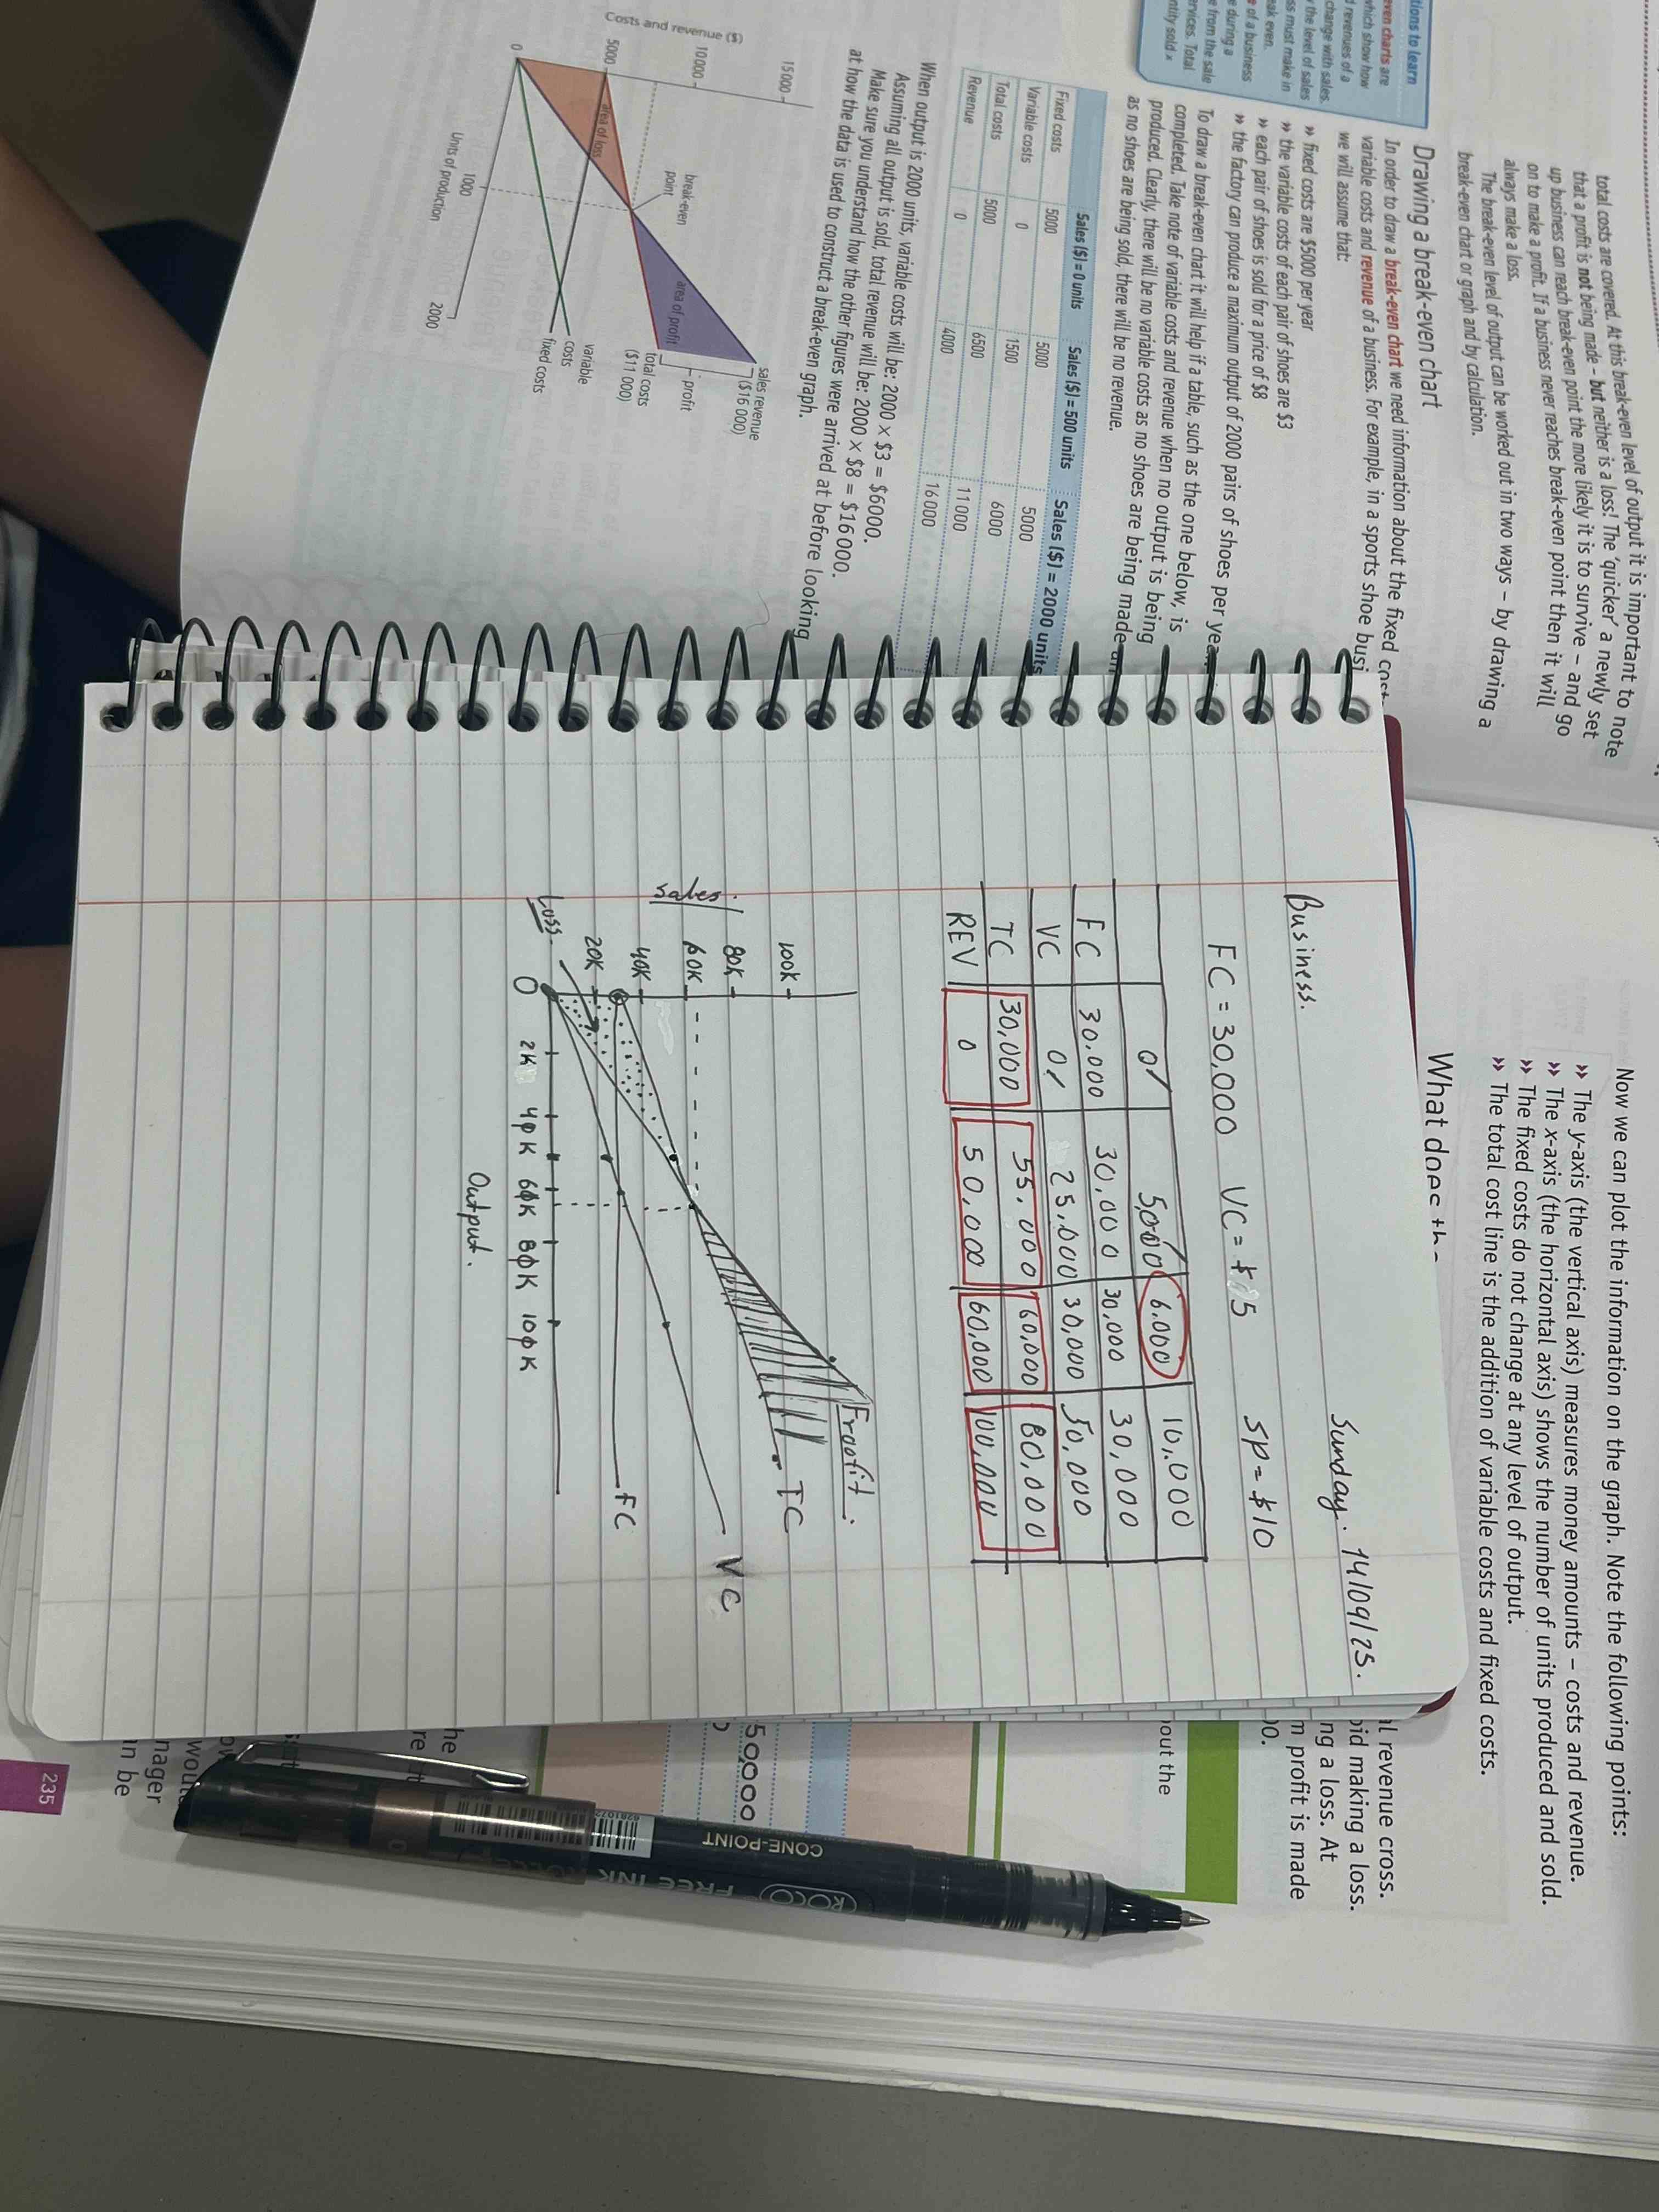 total costs are covered. At this break-even level of output it is important to note
that a profit is not being made – but neither is a loss! The 'quicker' a newly set
up business can reach break-even point the more likely it is to survive – and go
on to make a profit. If a business never reaches break-even point then it will
always make a loss.
The break-even level of output can be worked out in two ways – by drawing a
break-even chart or graph and by calculation.
tions to learn
even charts are
which show how
d revenues of a
change with sales.
the level of sales
ss must make in
eak even.
of a business
e during a
e from the sale
ervices. Total
ntity sold ×
Drawing a break-even chart
In order to draw a break-even chart we need information about the fixed cost
variable costs and revenue of a business. For example, in a sports shoe busi
we will assume that:
» fixed costs are $5000 per year
» the variable costs of each pair of shoes are $3
» each pair of shoes is sold for a price of $8
» the factory can produce a maximum output of 2000 pairs of shoes per year.
To draw a break-even chart it will help if a table, such as the one below, is
completed. Take note of variable costs and revenue when no output is being
produced. Clearly, there will be no variable costs as no shoes are being made an
as no shoes are being sold, there will be no revenue.
Sales ($) = 0 units Sales ($) = 500 units Sales ($) = 2000 units
Fixed costs 5000 5000 5000
Variable costs 0 1500 6000
Total costs 5000 6500 11 000
Revenue 0 4000 16 000
When output is 2000 units, variable costs will be: 2000 × $3 = $6000.
Assuming all output is sold, total revenue will be: 2000 × $8 = $16 000.
Make sure you understand how the other figures were arrived at before looking
at how the data is used to construct a break-even graph.
Costs and revenue ($)
15 000
10 000
5000
0
1000
2000
Units of production
area of loss
break-even
point
area of profit
sales revenue
($16 000)
profit
total costs
($11 000)
variable
costs
fixed costs
Now we can plot the information on the graph. Note the following points:
» The y-axis (the vertical axis) measures money amounts – costs and revenue.
» The x-axis (the horizontal axis) shows the number of units produced and sold.
» The fixed costs do not change at any level of output.
» The total cost line is the addition of variable costs and fixed costs.
What does th
l revenue cross.
oid making a loss.
ng a loss. At
m profit is made
00.
out the
50,000
he
re
nager
n be
235
Sunday. 14/09/25.
Business.
FC = 30,000 VC = $5 SP = $10
0 5,000 6.000 10.000
FC 30.000 30,000 30,000 30,000
VC 0 25,000 30,000 50,000
TC 30,000 55,000 60,000 80,000
REV 0 50,000 60,000 100,000
Sales.
100k
80k
60k
40k
20k
0
2K 4K 6K 8K 10K
Output.
Loss.
Profit.
TC
VC
FC
CONE-POINT
ROCO
FREE INK ROLLER